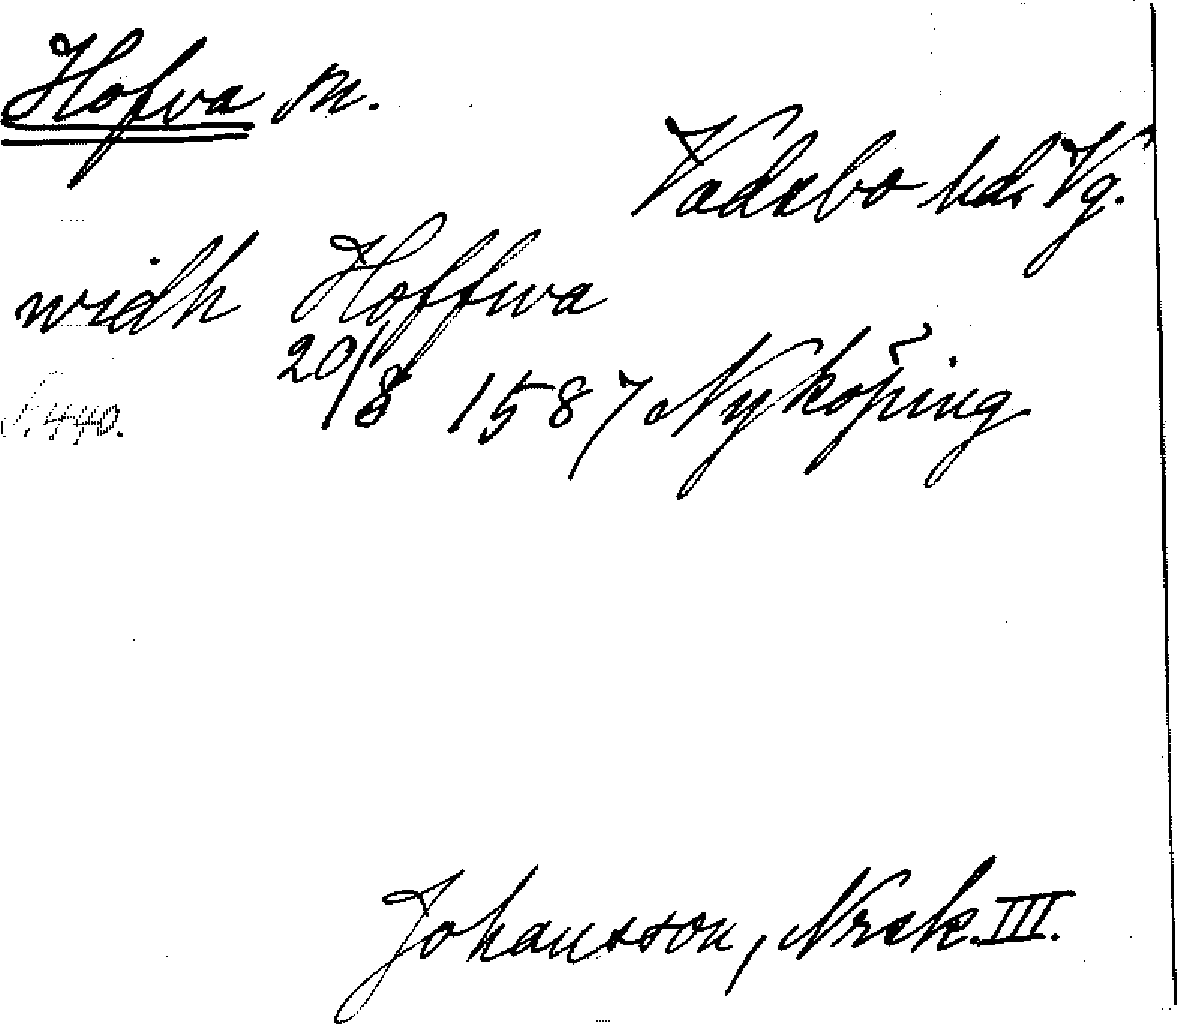 Hofva sn.
Vadsbo hd. Vg.
widh Hoffwa
20/8 1587 Nyköping
S. 440.
Johansson, Nrik. III.